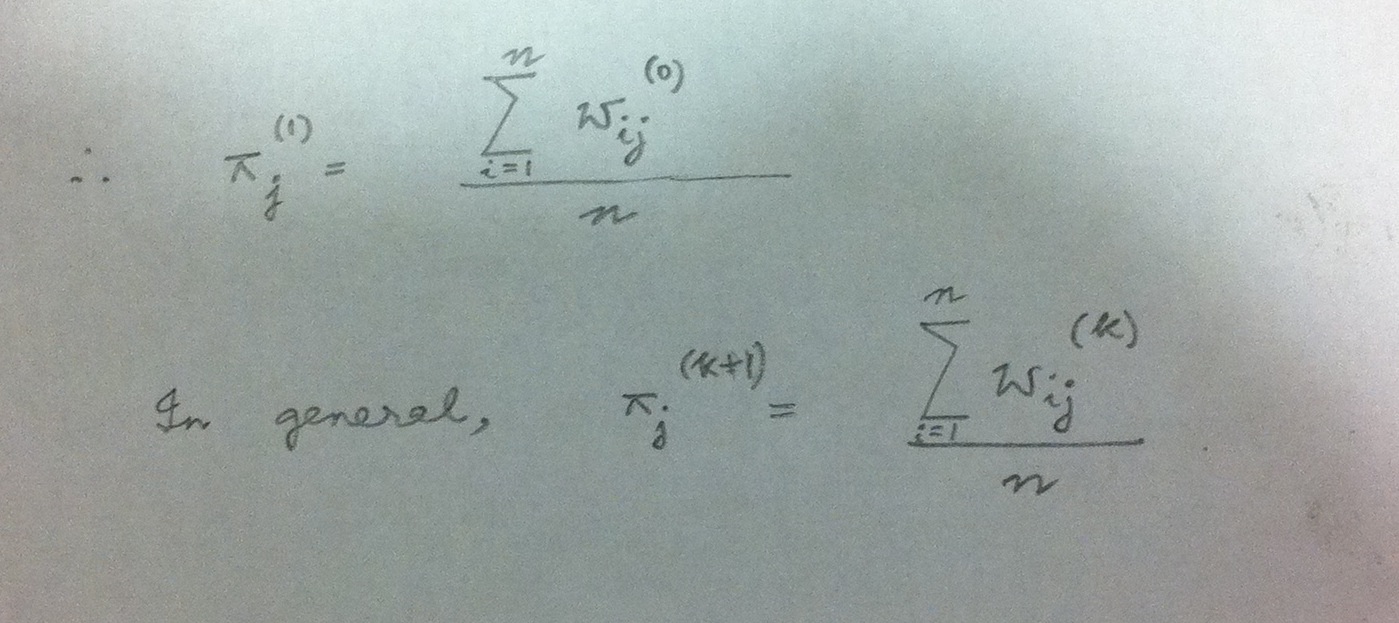 ∴ π_j^{(1)} = \frac{\sum_{i=1}^{n} w_{ij}^{(0)}}{n}
In general, π_j^{(k+1)} = \frac{\sum_{i=1}^{n} w_{ij}^{(k)}}{n}